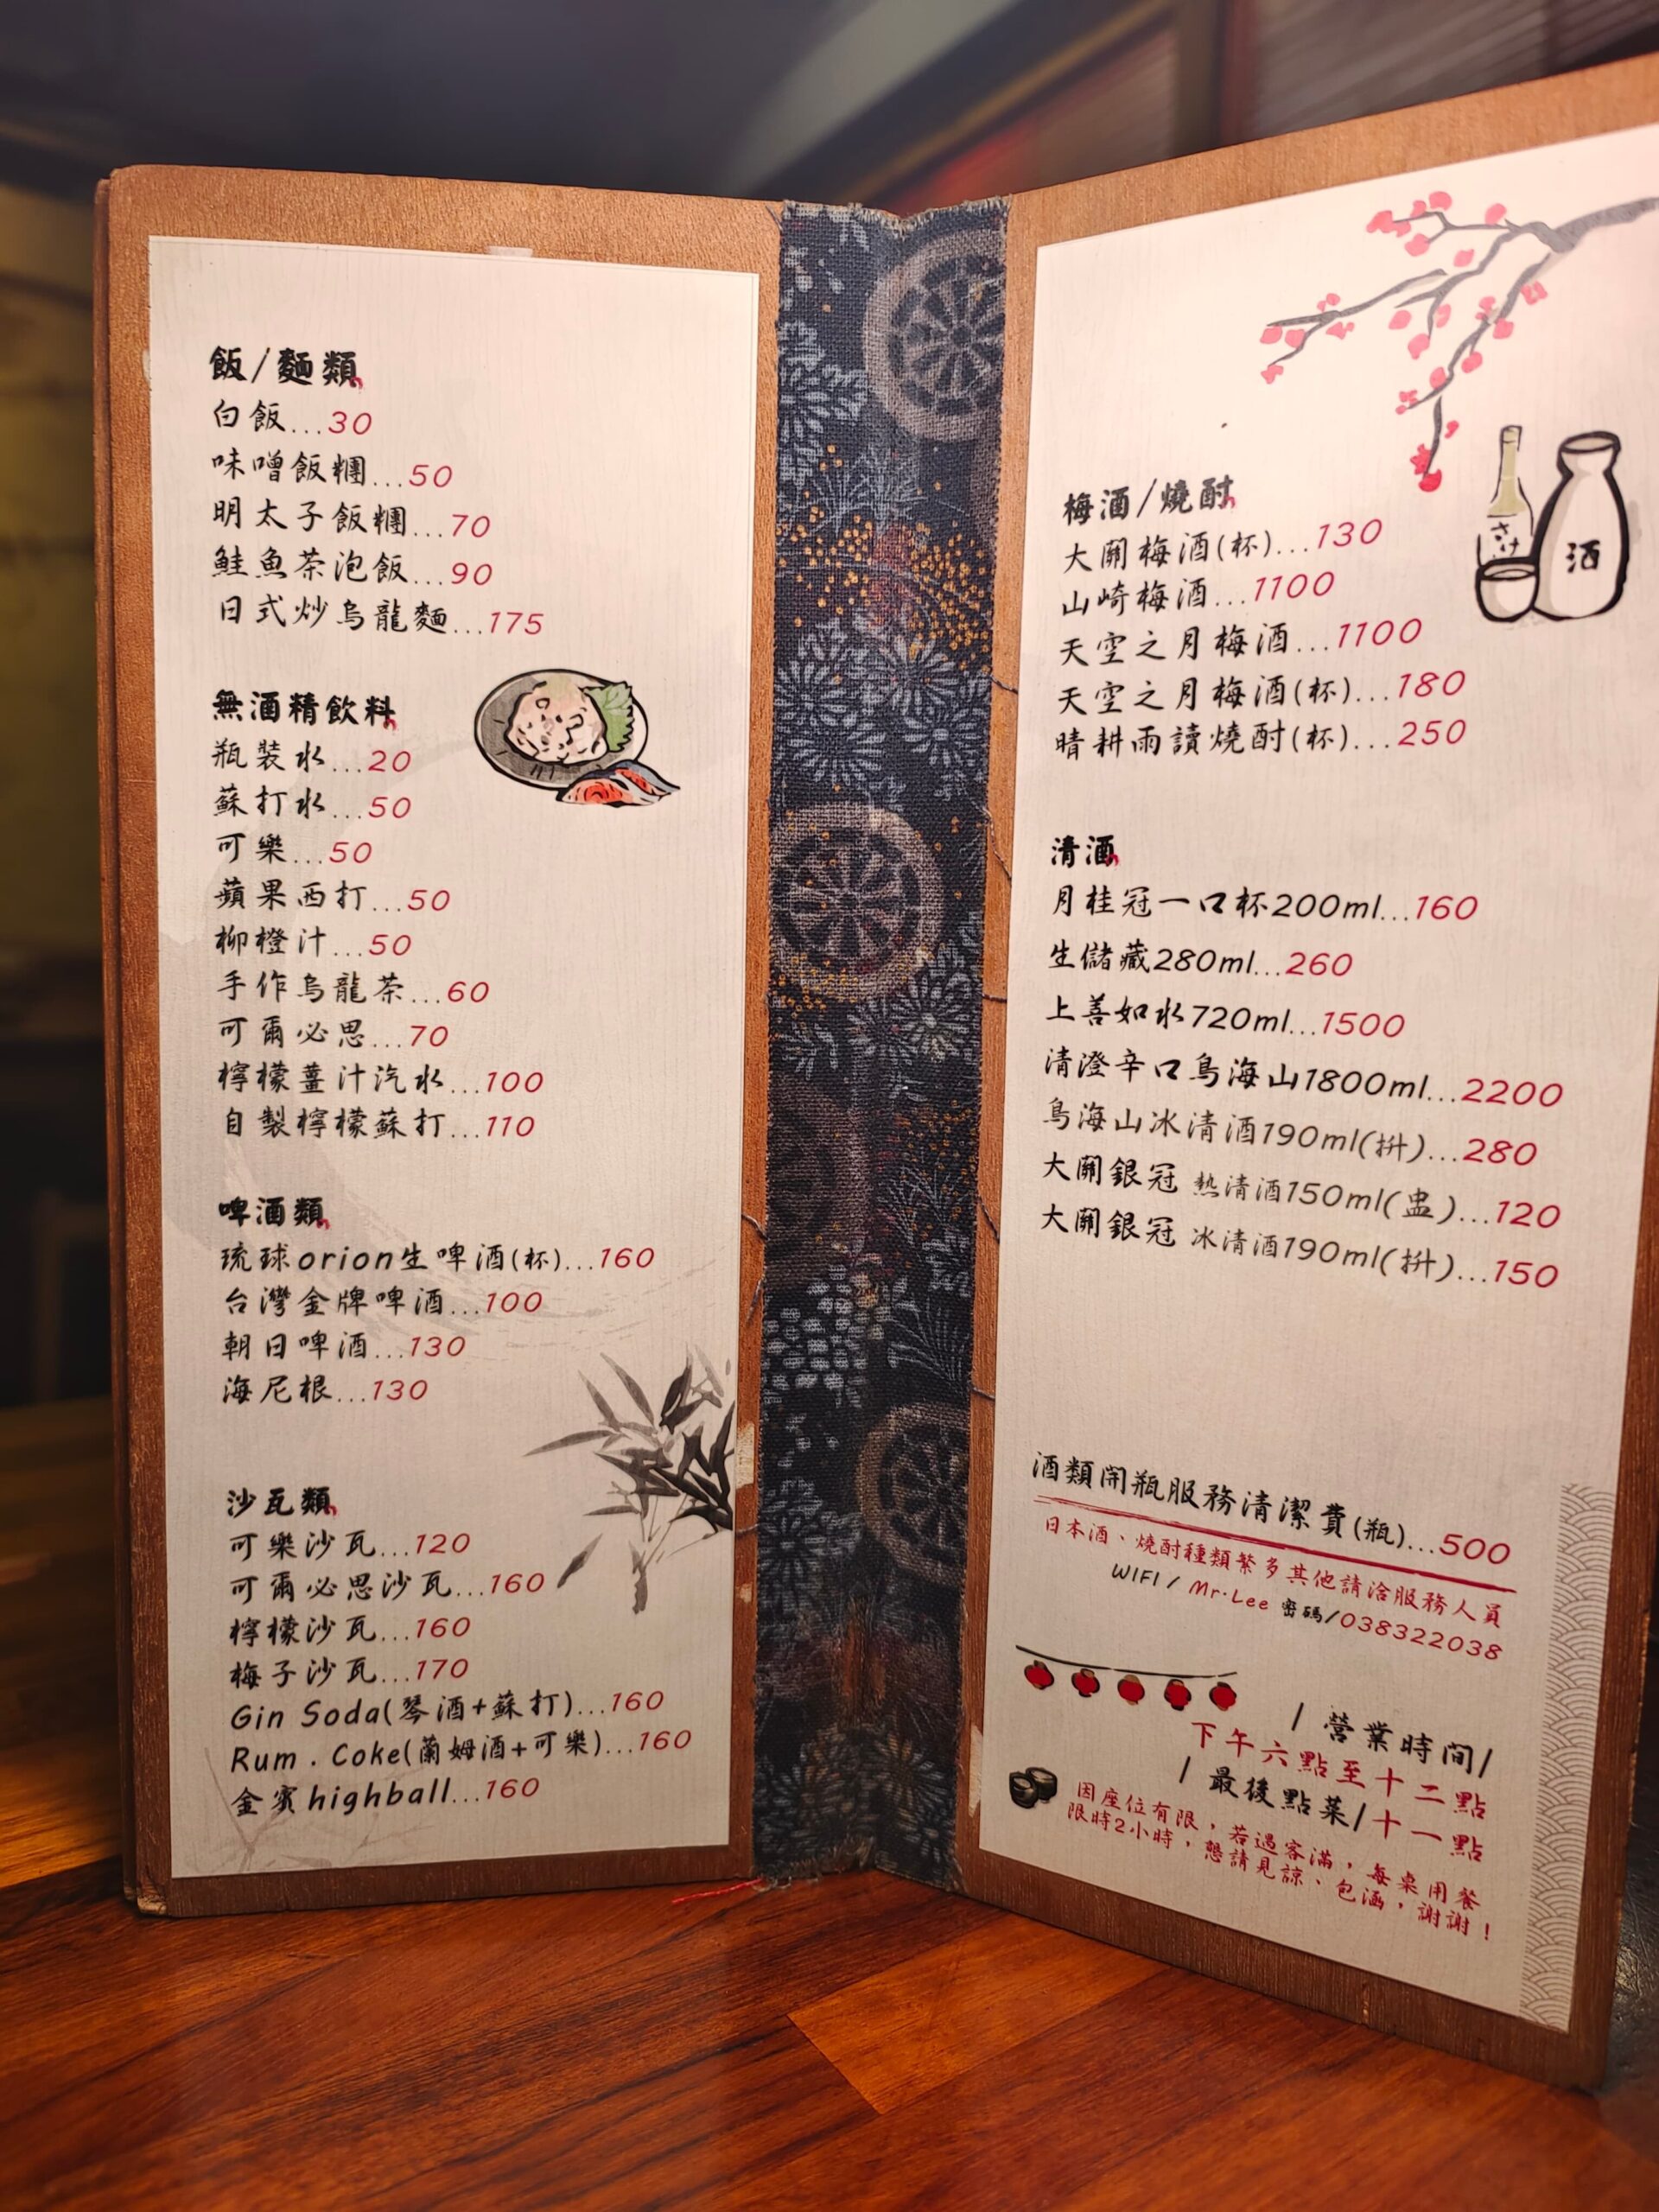 飯/麵類
白飯...30
味噌飯糰...50
明太子飯糰...70
鮭魚茶泡飯...90
日式炒烏龍麵...175
無酒精飲料
瓶裝水...20
蘇打水...50
可樂...50
蘋果西打...50
柳橙汁...50
手作烏龍茶...60
可爾必思...70
檸檬薑汁汽水...100
自製檸檬蘇打...110
啤酒類
琉球orion生啤酒(杯)...160
台灣金牌啤酒...100
朝日啤酒...130
海尼根...130
沙瓦類
可樂沙瓦...120
可爾必思沙瓦...160
檸檬沙瓦...160
梅子沙瓦...170
Gin Soda(琴酒+蘇打)...160
Rum . Coke(蘭姆酒+可樂)...160
金賓highball...160
さけ
酒
梅酒/燒酎
大關梅酒(杯)...130
山崎梅酒...1100
天空之月梅酒...1100
天空之月梅酒(杯)...180
晴耕雨讀燒酎(杯)...250
清酒
月桂冠一口杯200ml...160
生儲藏280ml...260
上善如水720ml...1500
清澄辛口鳥海山1800ml...2200
鳥海山冰清酒190ml(拼)...280
大關銀冠 熱清酒150ml(盅)...120
大關銀冠 冰清酒190ml(拼)...150
酒類開瓶服務清潔費(瓶)...500
日本酒、燒酎種類繁多其他請洽服務人員
WIFI / Mr.Lee 密碼/038322038
/ 營業時間/
下午六點至十二點
/ 最後點菜/十一點
因座位有限，若遇客滿，每桌用餐
限時2小時，懇請見諒、包涵，謝謝！